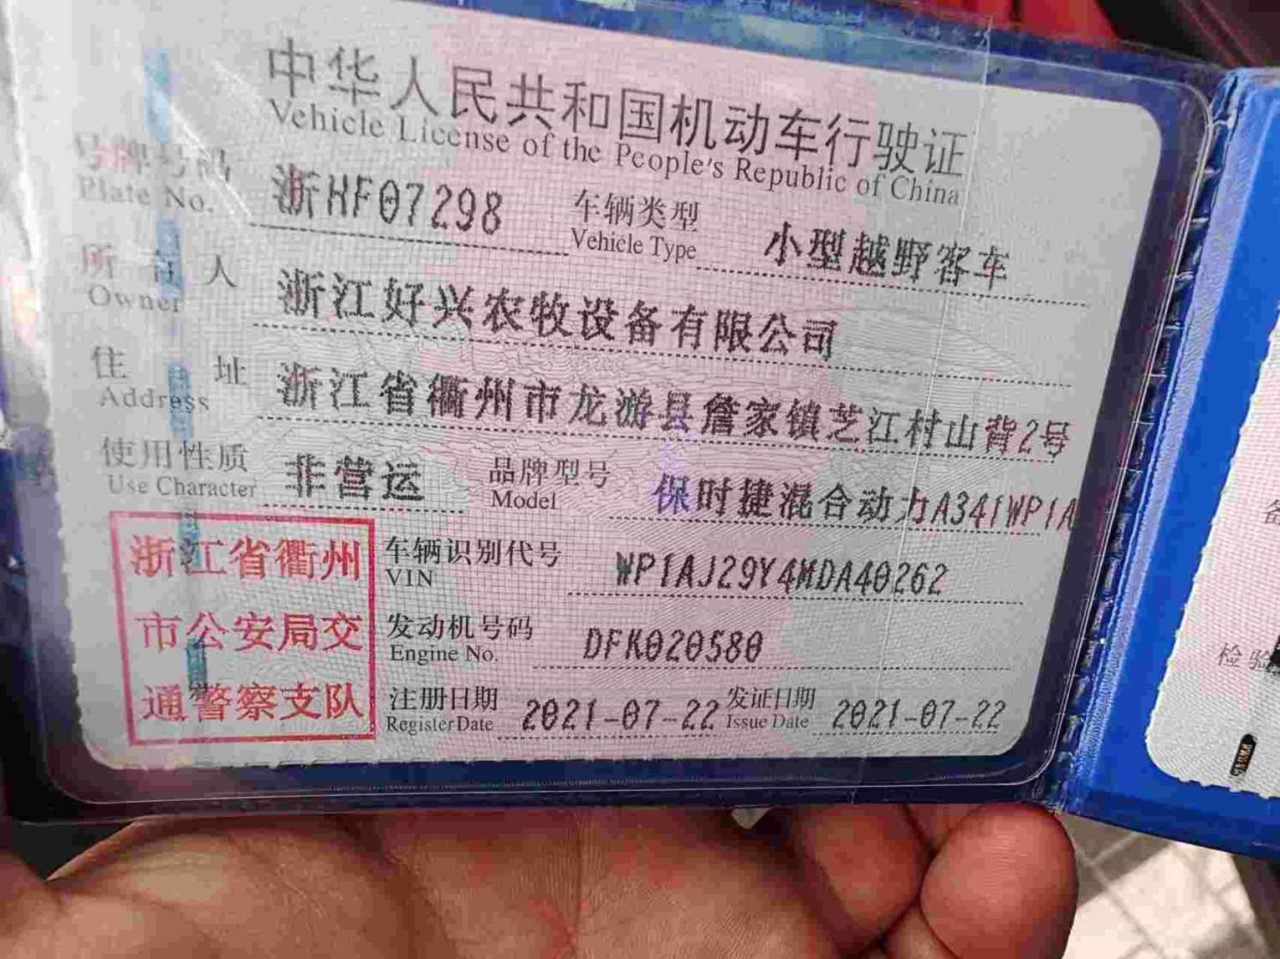 中华人民共和国机动车行驶证
Vehicle License of the People's Republic of China
号牌号码 浙HF07298 车辆类型 小型越野客车
Plate No. Vehicle Type
所有人 浙江好兴农牧设备有限公司
Owner
住址 浙江省衢州市龙游县詹家镇芝江村山背2号
Address
使用性质 非营运 品牌型号 保时捷混合动力A341WP1A
Use Character Model
浙江省衢州
市公安局交
通警察支队
车辆识别代号 WP1AJ29Y4MDA40262
VIN
发动机号码 DFK020580
Engine No.
注册日期 2021-07-22 发证日期 2021-07-22
Register Date Issue Date
检验